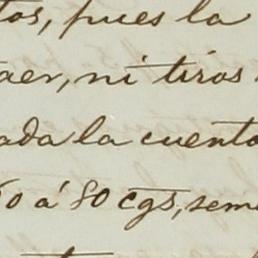 tos, pues la
aer, ni tiros
ada la cuenta
60 á 80 cgs, sem